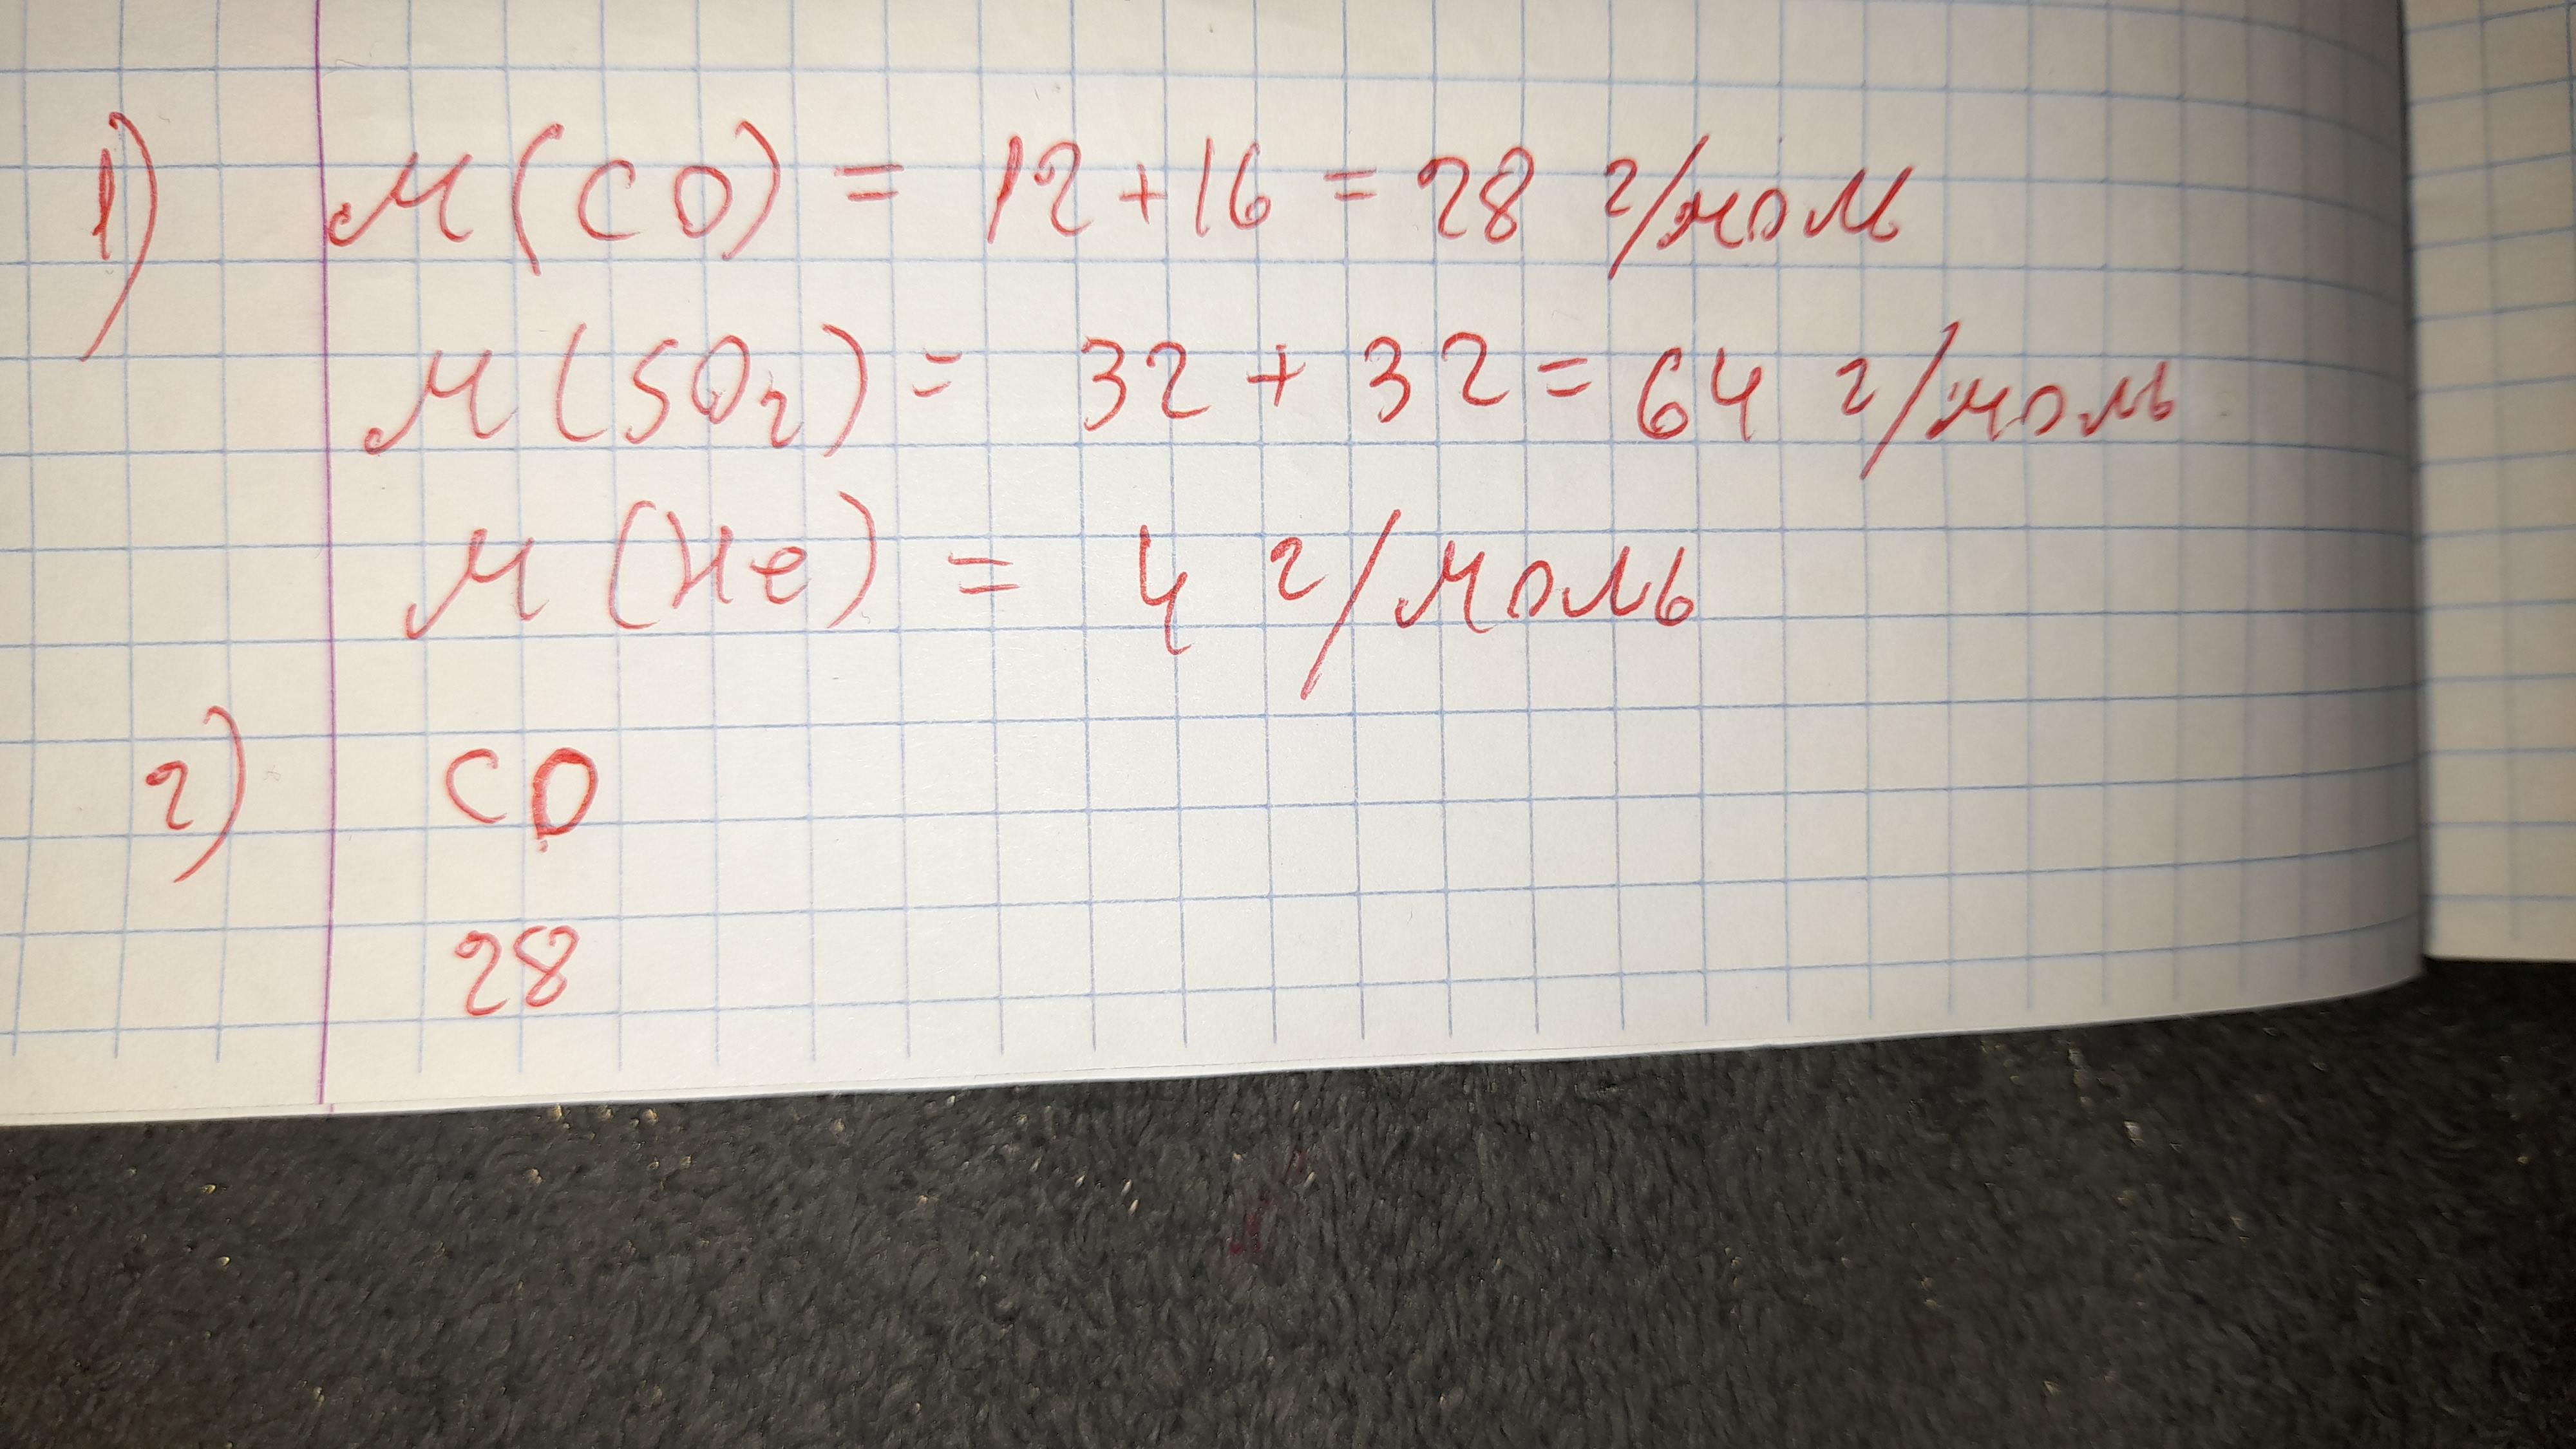 1) M(CO) = 12+16 = 28 г/моль
M(SO₂) = 32 + 32 = 64 г/моль
M(He) = 4 г/моль
2) CO
28